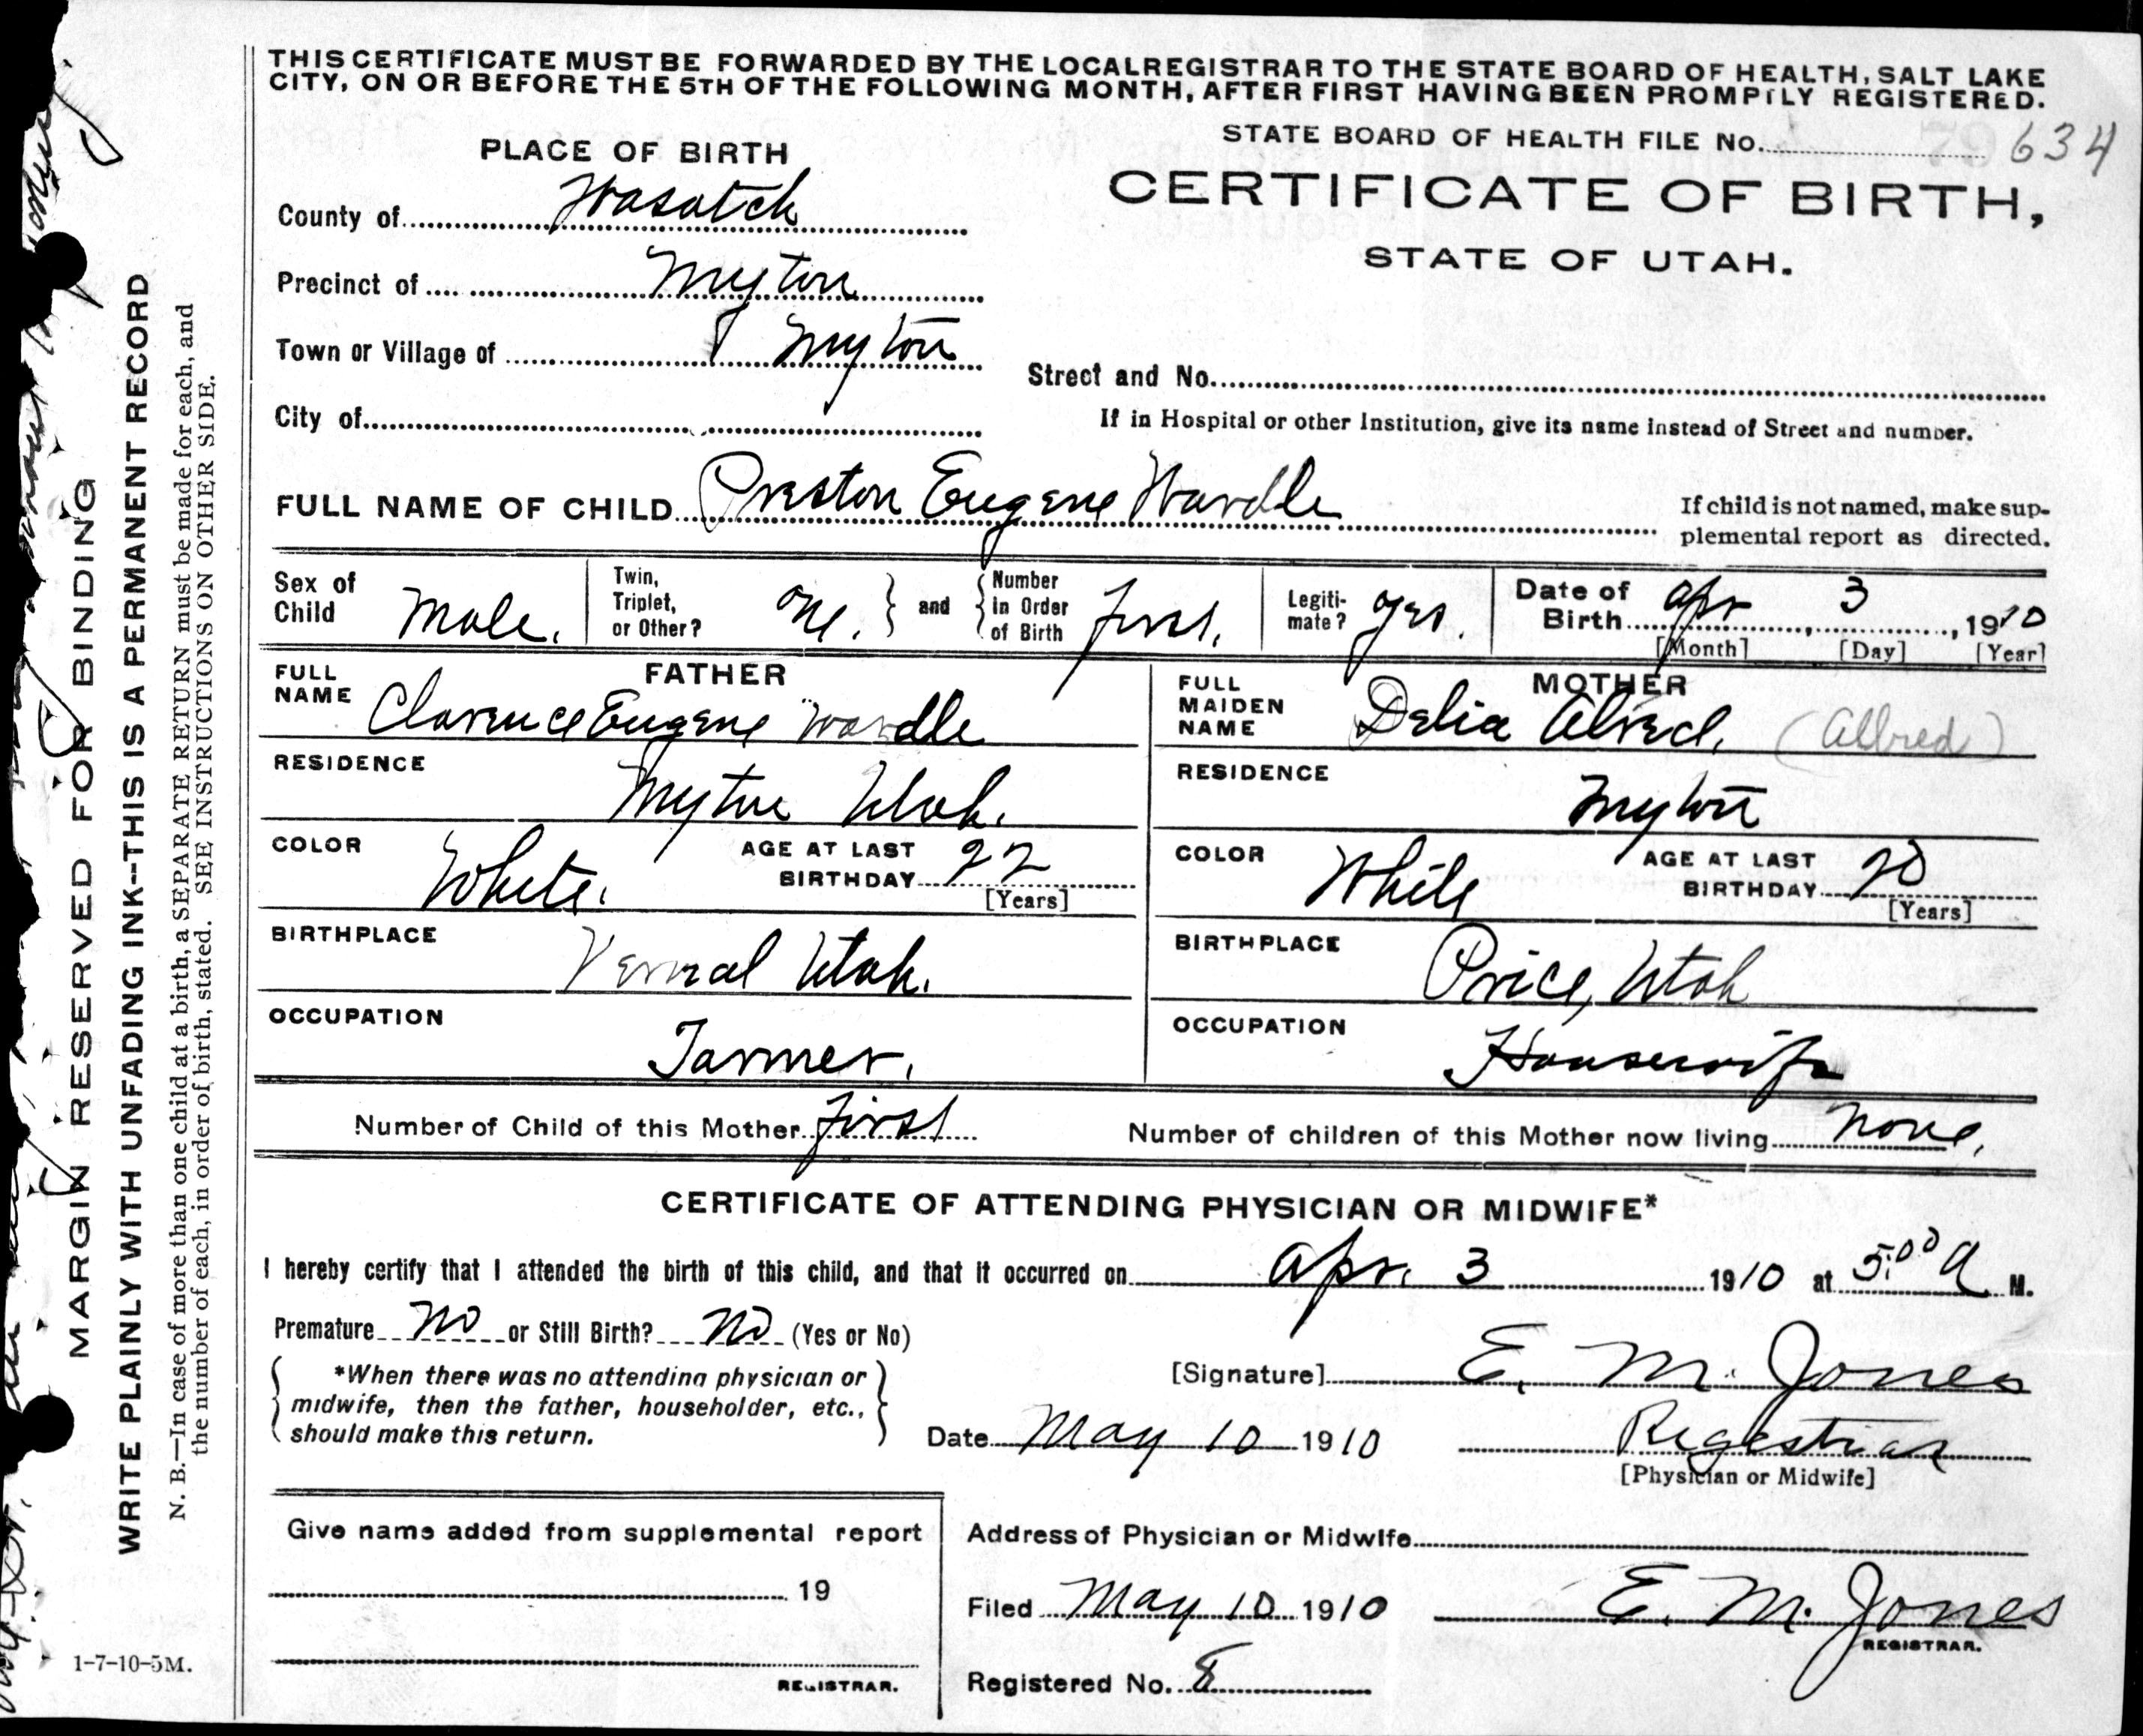 THIS CERTIFICATE MUST BE FORWARDED BY THE LOCAL REGISTRAR TO THE STATE BOARD OF HEALTH, SALT LAKE
CITY, ON OR BEFORE THE 5TH OF THE FOLLOWING MONTH, AFTER FIRST HAVING BEEN PROMPTLY REGISTERED.
STATE BOARD OF HEALTH FILE No. 634
PLACE OF BIRTH
CERTIFICATE OF BIRTH,
STATE OF UTAH.
County of Wasatch
Precinct of Myton
Town or Village of Myton
Street and No.
City of
If in Hospital or other Institution, give its name instead of Street and number.
FULL NAME OF CHILD Preston Eugene Wardle
If child is not named, make sup-
plemental report as directed.
Sex of Child Male.
Twin, Triplet, or Other? One. and Number in Order of Birth first.
Legiti-mate? yes.
Date of Birth Apr 3, 1910
[Month] [Day] [Year]
FATHER
FULL NAME Clarence Eugene Wardle
MOTHER
FULL MAIDEN NAME Delia Alred. (Allred)
RESIDENCE Myton Utah.
RESIDENCE Myton
COLOR White. AGE AT LAST BIRTHDAY 22 [Years]
COLOR White AGE AT LAST BIRTHDAY 20 [Years]
BIRTHPLACE Vernal Utah.
BIRTHPLACE Price, Utah
OCCUPATION Farmer.
OCCUPATION Housewife
Number of Child of this Mother first
Number of children of this Mother now living none.
CERTIFICATE OF ATTENDING PHYSICIAN OR MIDWIFE*
I hereby certify that I attended the birth of this child, and that it occurred on Apr. 3 1910 at 5:00 A M.
Premature No or Still Birth? No (Yes or No)
*When there was no attending physician or
midwife, then the father, householder, etc.,
should make this return.
[Signature] E. M. Jones
Date May 10 1910
Registrar
[Physician or Midwife]
Give name added from supplemental report
19
REGISTRAR.
Address of Physician or Midwife
Filed May 10 1910 E. M. Jones
REGISTRAR.
Registered No. 8
MARGIN RESERVED FOR BINDING
WRITE PLAINLY WITH UNFADING INK--THIS IS A PERMANENT RECORD
N. B.—In case of more than one child at a birth, a SEPARATE RETURN must be made for each, and
the number of each, in order of birth, stated. SEE INSTRUCTIONS ON OTHER SIDE.
1-7-10-5M.